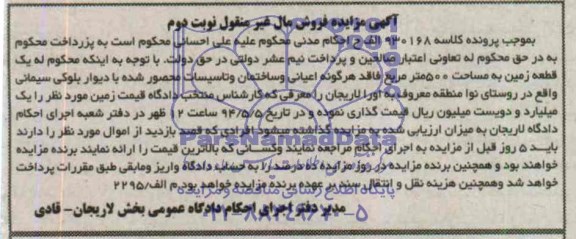 آگهی مزایده فروش مال غیر منقول نوبت دوم
بموجب پرونده کلاسه ۹۳۰۱۶۸ الف ح احکام مدنی محکوم علیه علی احسانی محکوم است به پرداخت محکوم
به در حق محکوم له تعاونی اعتبار صالحین و پرداخت نیم عشر دولتی در حق دولت. با توجه به اینکه محکوم له یک
قطعه زمین به مساحت ۵۰۰متر مربع فاقد هرگونه اعیانی وساختمان وتاسیسات محصور شده با دیوار بلوکی سیمانی
واقع در روستای نوا منطقه معروف به اورا لاریجان را معرفی که کارشناس منتخب دادگاه قیمت زمین مورد نظر را یک
میلیارد و دویست میلیون ریال قیمت گذاری نموده و در تاریخ ۹۴/۵/۵ ساعت ۱۲ ظهر در دفتر شعبه اجرای احکام
دادگاه لاریجان به میزان ارزیابی شده به مزایده گذاشته میشود افرادی که قصد بازدید از اموال مورد نظر را دارند
بایـد ۵ روز قبل از مزایده به اجرای احکام مراجعه نمایند وکسـانی که بالاترین قیمت را ارائه نمایند برنده مزایده
خواهند بود و همچنین برنده مزایده در روز مزایده ده درصد را به حساب دادگاه واریز ومابقی طبق مقررات پرداخت
خواهد شد وهمچنین هزینه نقل و انتقال سند بر عهده برنده مزایده خواهد بود.م الف/۲۲۹۵
مدیر دفتر اجرای احکام دادگاه عمومی بخش لاریجان- قادی
ParsNamadData
پایگاه اطلاع رسانی مناقصه و مزایده